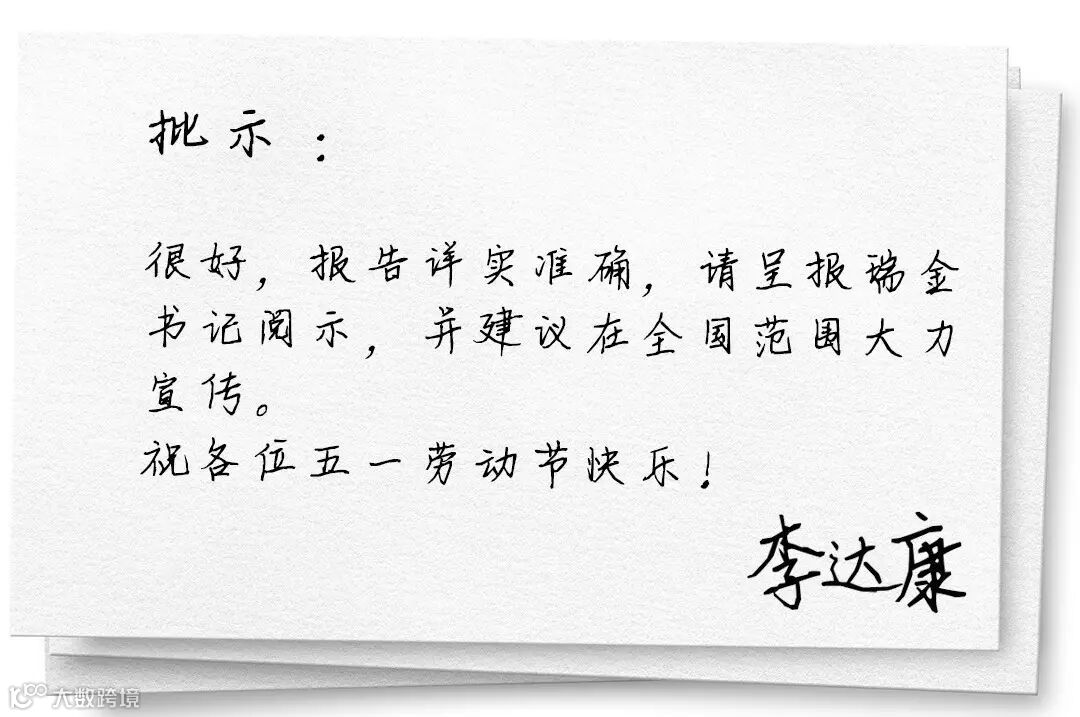 批示：
很好，报告详实准确，请呈报瑞金
书记阅示，并建议在全国范围大力
宣传。
祝各位五一劳动节快乐！
李达康
大数跨境